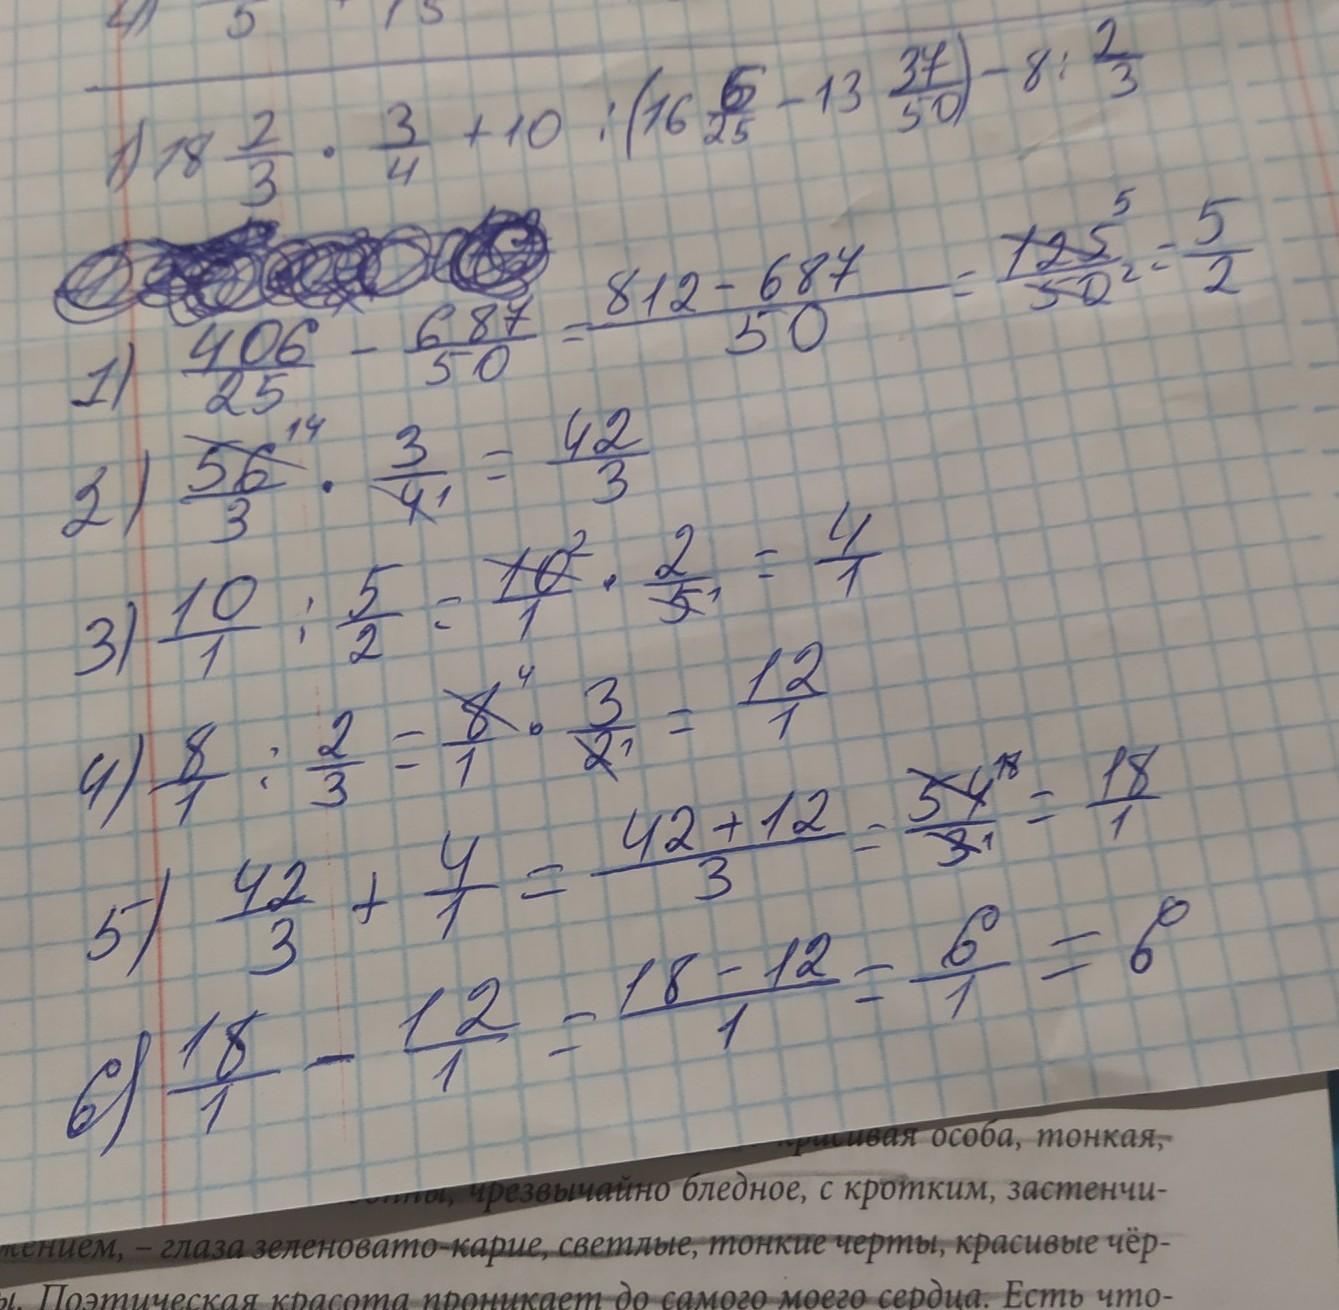 4) 5 15
1) 18 2/3 · 3/4 + 10 : (16 6/25 - 13 37/50) - 8 : 2/3
1) 406/25 - 687/50 = 812 - 687/50 = 125 5/50 2 = 5/2
2) 56 14/3 · 3/4 1 = 42/3
3) 10/1 : 5/2 = 10 2/1 · 2/5 1 = 4/1
4) 8/1 : 2/3 = 8 4/1 · 3/2 1 = 12/1
5) 42/3 + 4/1 = 42 + 12/3 = 54 18/3 1 = 18/1
6) 18/1 - 12/1 = 18 - 12/1 = 6/1 = 6
красивая особа, тонкая,
чрезвычайно бледное, с кротким, застенчи-
жением, – глаза зеленовато-карие, светлые, тонкие черты, красивые чёр-
ы. Поэтическая красота проникает до самого моего сердца. Есть что-